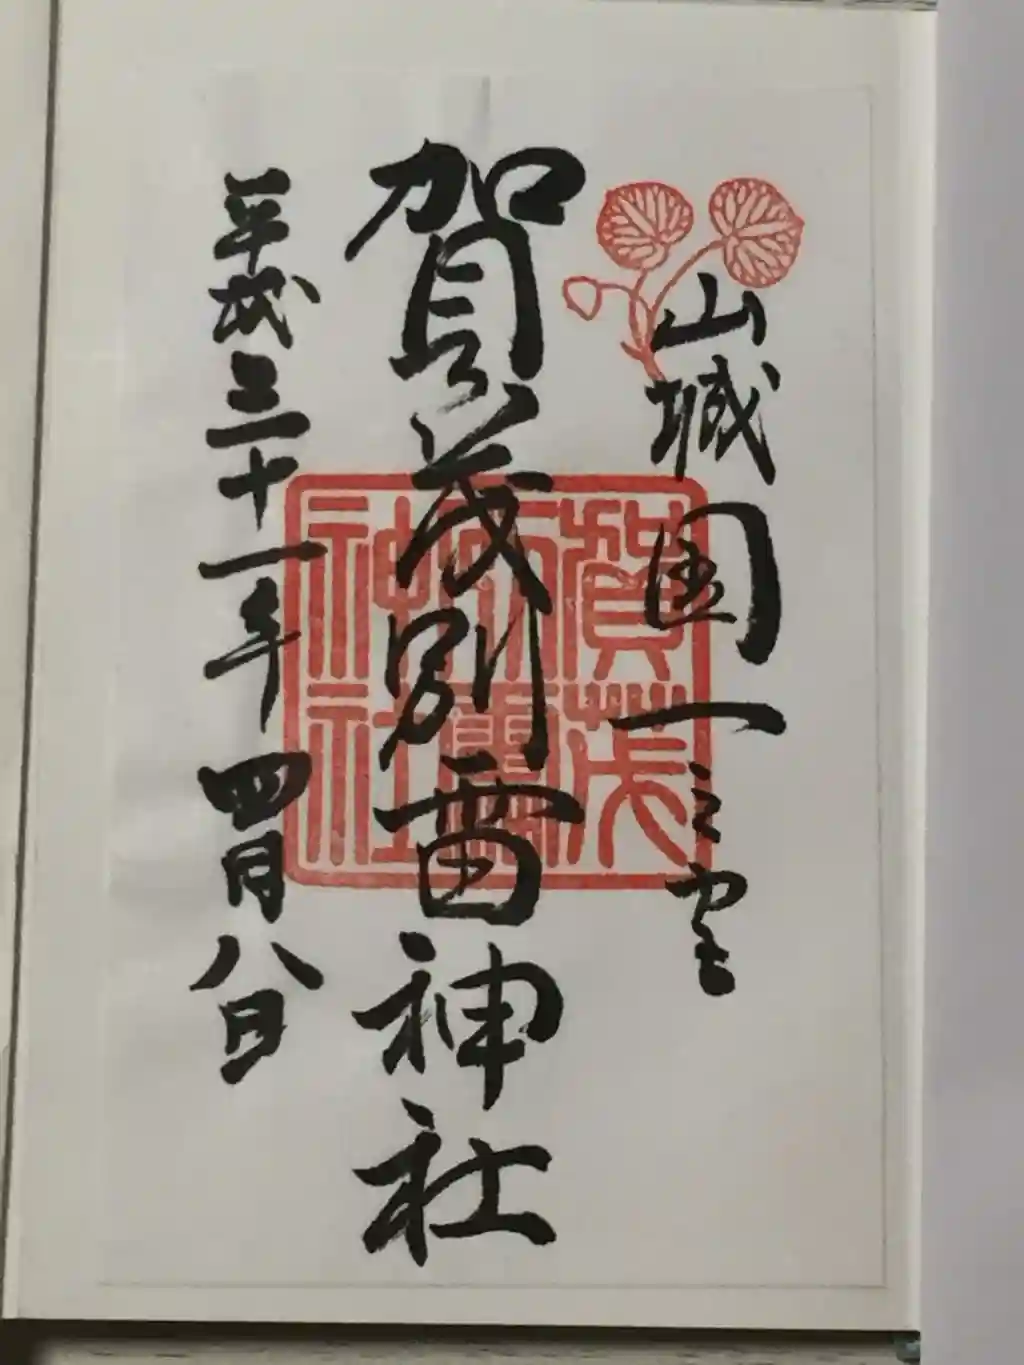 山城国一之宮
賀茂別雷神社
賀茂別雷神社
平成三十一年四月八日